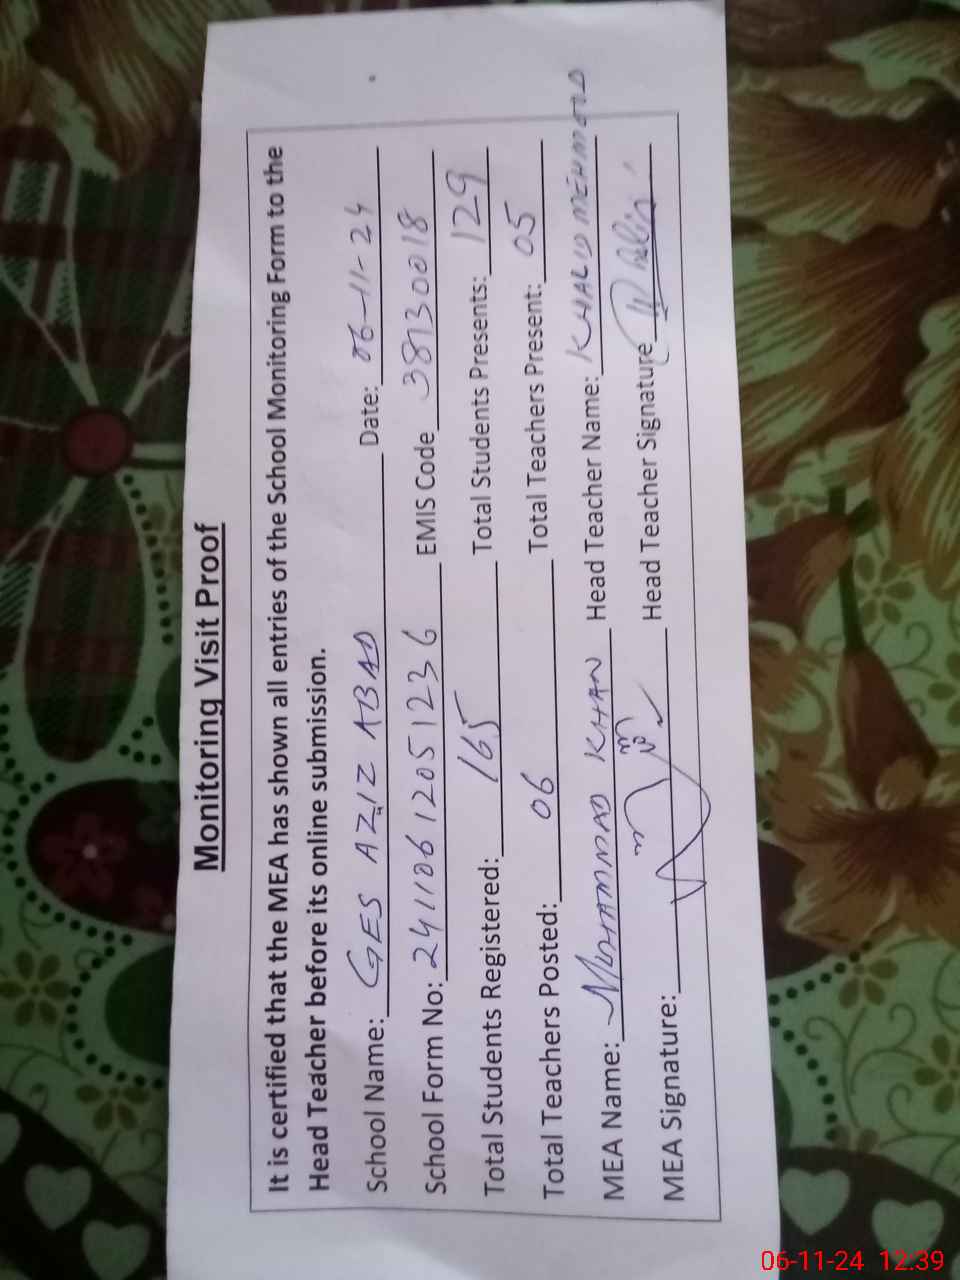 Monitoring Visit Proof
It is certified that the MEA has shown all entries of the School Monitoring Form to the
Head Teacher before its online submission.
School Name: GES AZIZ ABAD Date: 06-11-24
School Form No: 241106120512 36 EMIS Code 38130018
Total Students Registered: 165 Total Students Presents: 129
Total Teachers Posted: 06 Total Teachers Present: 05
MEA Name: MUHAMMAD KHAN Head Teacher Name: KHALID MEHMOOD
MEA Signature: Head Teacher Signature
06-11-24 12:39